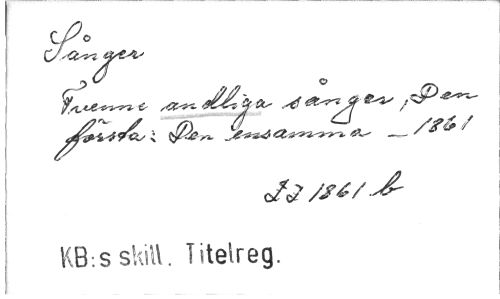 Sånger
Tvenne andliga sånger, Den
första: Den ensamma – 1861
1861 b
KB:s skill. Titelreg.